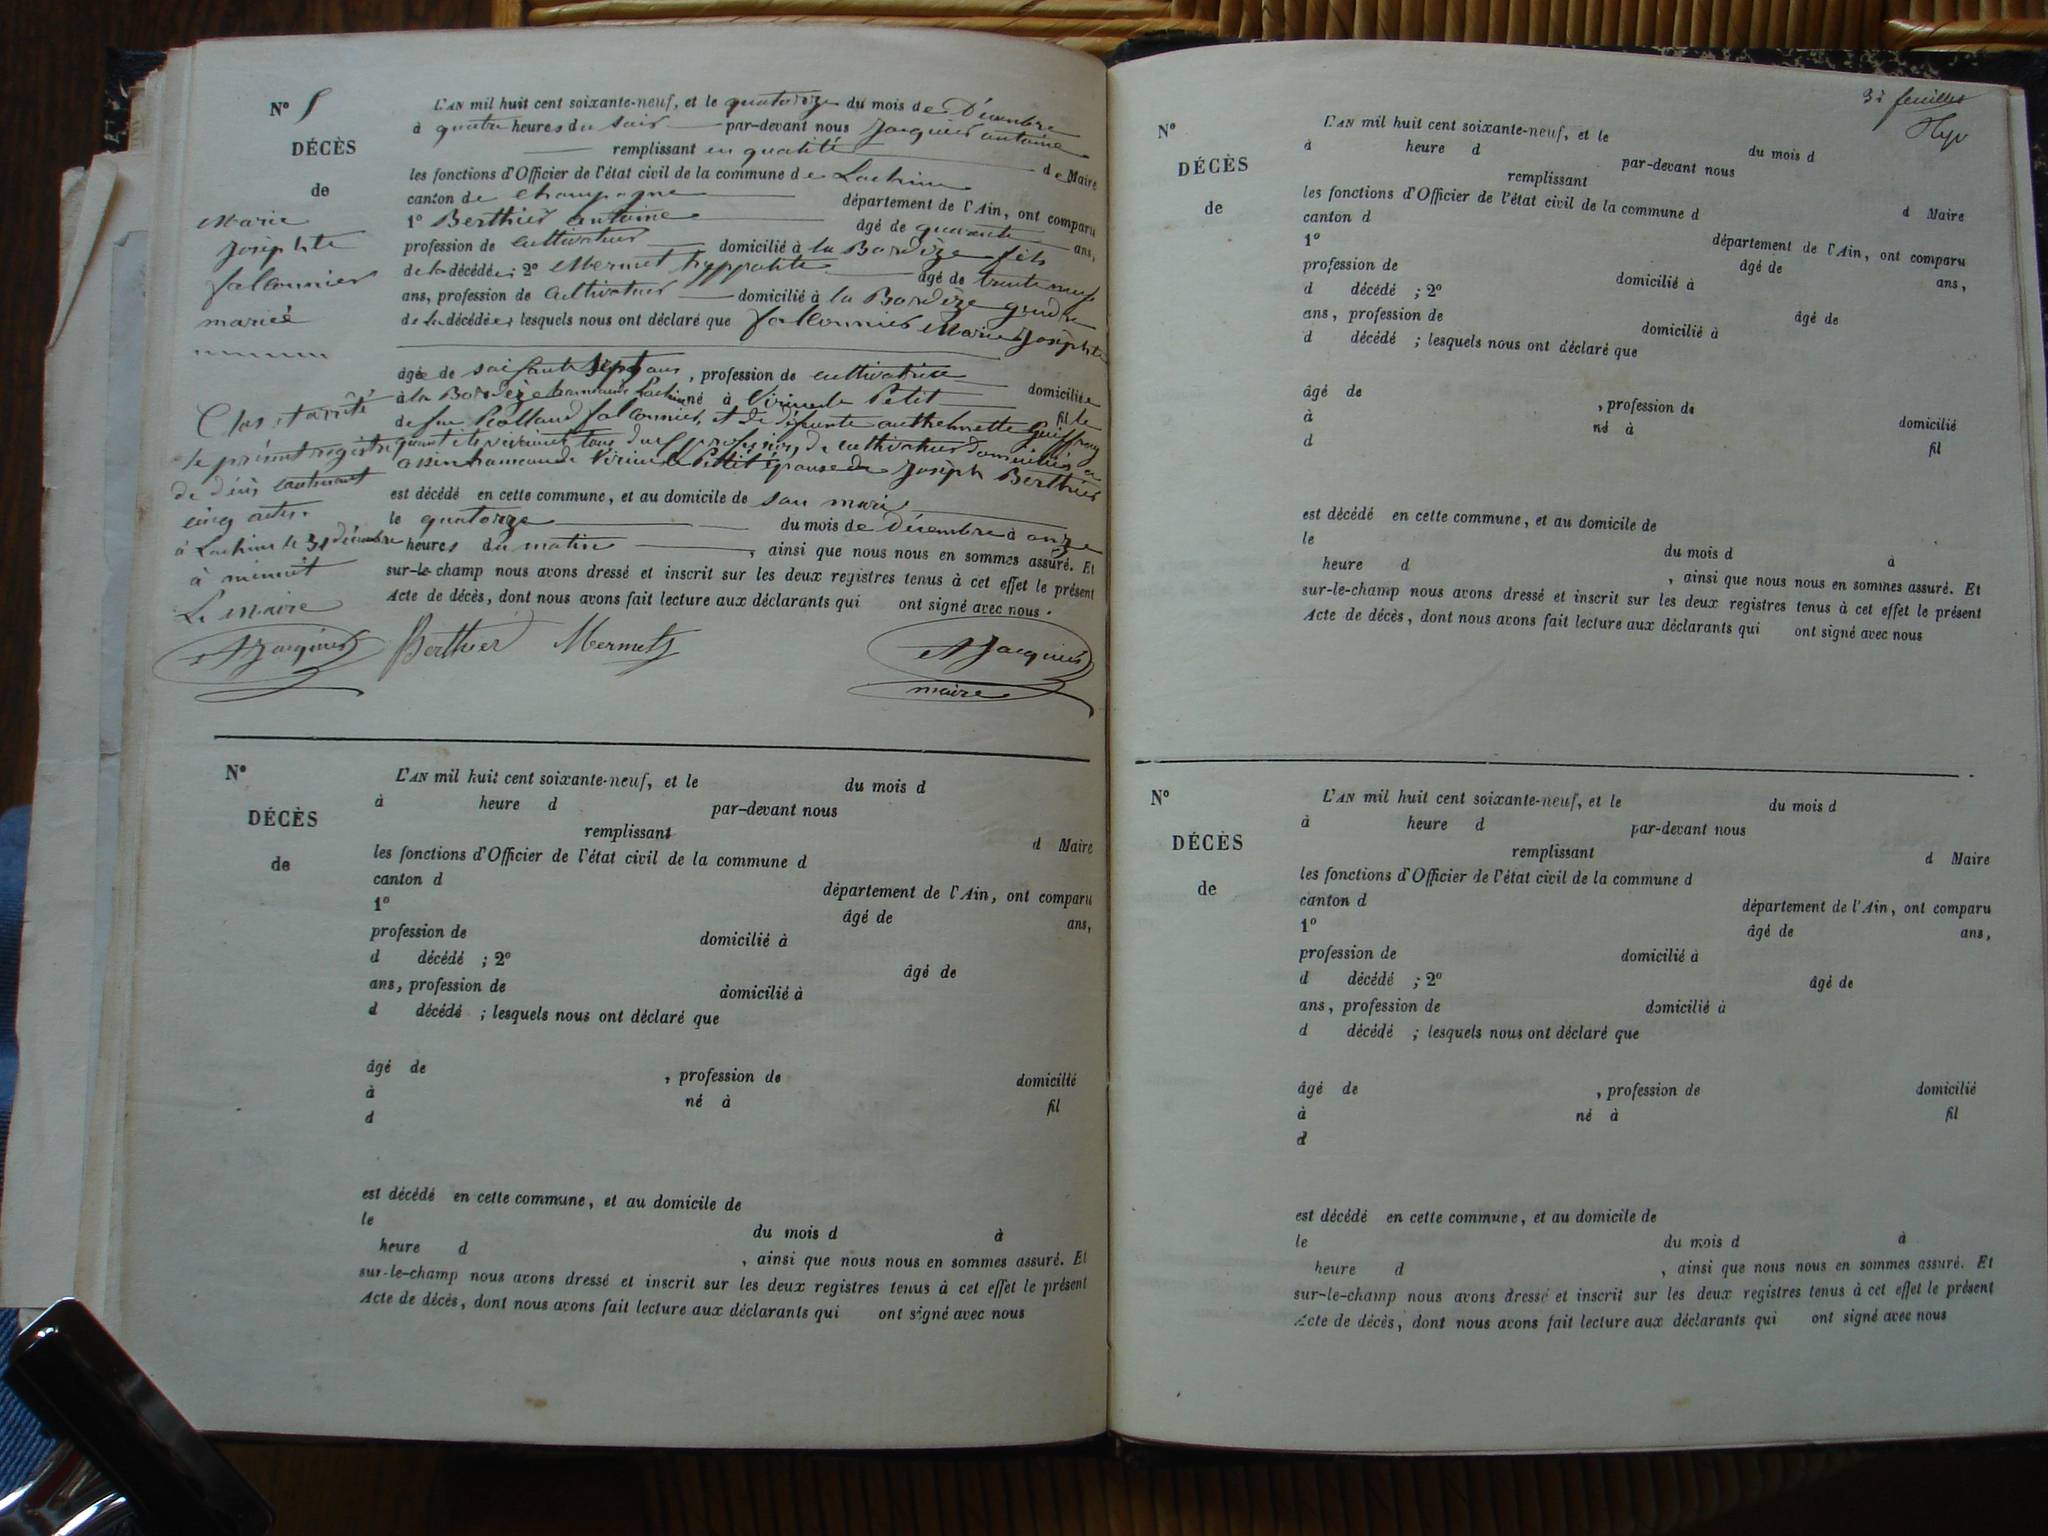 N° 5
DÉCÈS
de
Marie
Josephte
fallonnier
mariée
L'AN mil huit cent soixante-neuf, et le quatorze du mois de Décembre
à quatre heures du soir par-devant nous Jacquier antoine
remplissant en qualité de Maire
les fonctions d'Officier de l'état civil de la commune de Lochieu
canton de champagne département de l'Ain, ont comparu
1° Berthier antoine âgé de quarante ans,
profession de cultivateur domicilié à la Bordèze fils
de la décédée; 2° Mermet hyppolite âgé de trente neuf
ans, profession de cultivateur domicilié à la Bordèze gendre
de la décédée; lesquels nous ont déclaré que fallonnier Marie Josephte
âgée de soisante sept ans, profession de cultivatrice domiciliée
à la Bordèze hameau de Lochieu né à Virieu le Petit fille
de feu Rolland fallonnier, et de défunte anthelmette Guiffray
quant ils vivaient tous deux profession de cultivateur domiciliés a
hameau de Virieu le Petit épouse de Joseph Berthier
est décédé en cette commune, et au domicile de son mari
le quatorze du mois de Décembre à onze
heures du matin, ainsi que nous nous en sommes assuré. Et
sur-le-champ nous avons dressé et inscrit sur les deux registres tenus à cet effet le présent
Acte de décès, dont nous avons fait lecture aux déclarants qui ont signé avec nous.
Clos et arrêté
le présent registre
de décès contenant
cinq actes.
à Lochieu le 31 décembre
à minuit
Le maire
A Jacquier Berthier Mermet A Jacquier
maire
N°
DÉCÈS
de
L'AN mil huit cent soixante-neuf, et le du mois d
à heure d par-devant nous
remplissant d Maire
les fonctions d'Officier de l'état civil de la commune d
canton d département de l'Ain, ont comparu
1° âgé de ans,
profession de domicilié à
d décédé ; 2° âgé de
ans, profession de domicilié à
d décédé ; lesquels nous ont déclaré que
âgé de , profession de domicilié
à né à fil
d
est décédé en cette commune, et au domicile de
le du mois d à
heure d , ainsi que nous nous en sommes assuré. Et
sur-le-champ nous avons dressé et inscrit sur les deux registres tenus à cet effet le présent
Acte de décès, dont nous avons fait lecture aux déclarants qui ont signé avec nous
feuillet
N°
DÉCÈS
de
L'AN mil huit cent soixante-neuf, et le du mois d
à heure d par-devant nous
remplissant d Maire
les fonctions d'Officier de l'état civil de la commune d
canton d département de l'Ain, ont comparu
1° âgé de ans,
profession de domicilié à
d décédé ; 2° âgé de
ans, profession de domicilié à
d décédé ; lesquels nous ont déclaré que
âgé de , profession de domicilié
à né à fil
d
est décédé en cette commune, et au domicile de
le du mois d à
heure d , ainsi que nous nous en sommes assuré. Et
sur-le-champ nous avons dressé et inscrit sur les deux registres tenus à cet effet le présent
Acte de décès, dont nous avons fait lecture aux déclarants qui ont signé avec nous
N°
DÉCÈS
de
L'AN mil huit cent soixante-neuf, et le du mois d
à heure d par-devant nous
remplissant d Maire
les fonctions d'Officier de l'état civil de la commune d
canton d département de l'Ain, ont comparu
1° âgé de ans,
profession de domicilié à
d décédé ; 2° âgé de
ans, profession de domicilié à
d décédé ; lesquels nous ont déclaré que
âgé de , profession de domicilié
à né à fil
d
est décédé en cette commune, et au domicile de
le du mois d à
heure d , ainsi que nous nous en sommes assuré. Et
sur-le-champ nous avons dressé et inscrit sur les deux registres tenus à cet effet le présent
Acte de décès, dont nous avons fait lecture aux déclarants qui ont signé avec nous